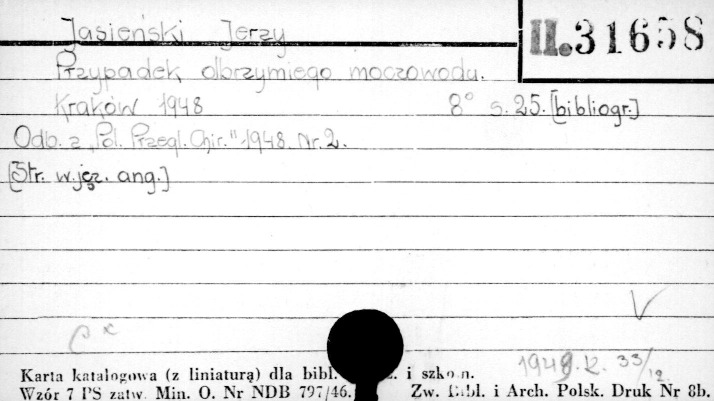 Jasieński Jerzy
II.31658
Przypadek olbrzymiego moczowodu.
Kraków 1948 8° s. 25. [bibliogr.]
Odb. z „Pol. Przegl. Chir." 1948. Nr. 2.
[Str. w jęz. ang.]
V
1948. K. 33/12.
Karta katalogowa (z liniaturą) dla bibl. i szkoln.
Wzór 7 PS zatw. Min. O. Nr NDB 797/46. Zw. Bibl. i Arch. Polsk. Druk Nr 8b.